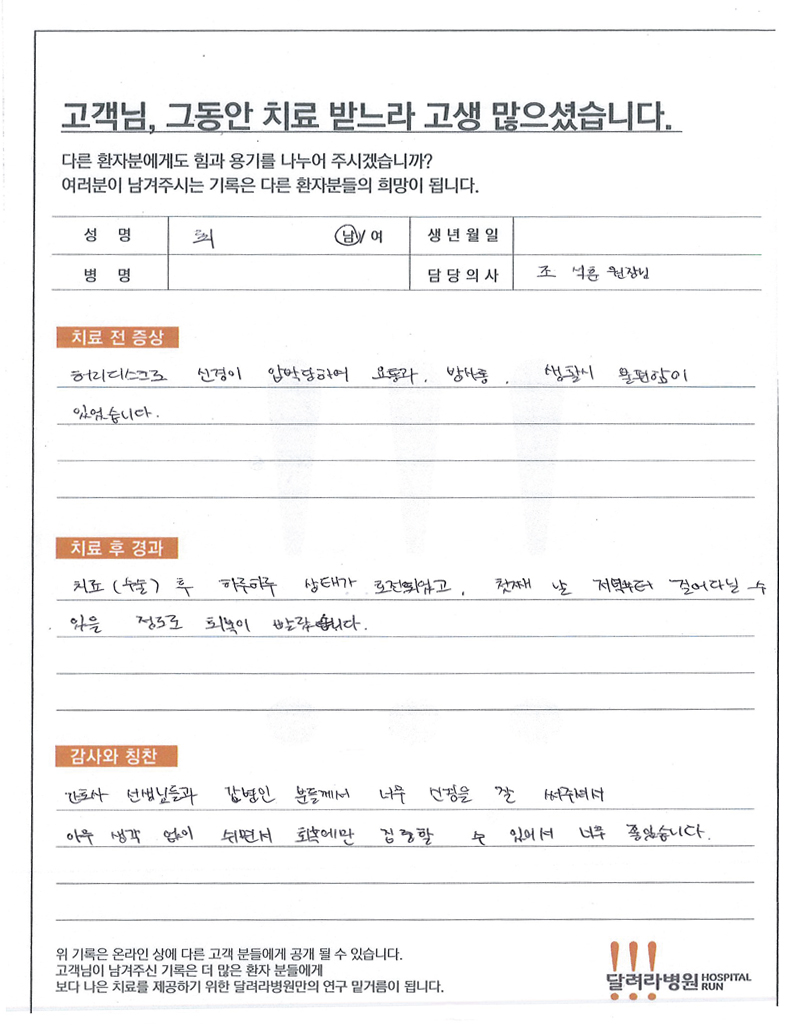 고객님, 그동안 치료 받느라 고생 많으셨습니다.
다른 환자분에게도 힘과 용기를 나누어 주시겠습니까?
여러분이 남겨주시는 기록은 다른 환자분들의 희망이 됩니다.
성 명 최 남/여 생년월일
병 명 담당의사 조 석훈 원장님
치료 전 증상
허리디스크로 신경이 압박당하여 요통과, 방사통, 생활시 불편함이
있었습니다.
치료 후 경과
치료 (수술) 후 하루하루 상태가 호전되었고, 첫째 날 저녁부터 걸어다닐 수
있을 정도로 회복이 빨랐습니다.
감사와 칭찬
간호사 선생님들과 간병인 분들께서 너무 신경을 잘 써주셔서
아무 생각 없이 쉬면서 회복에만 집중할 수 있어서 너무 좋았습니다.
위 기록은 온라인 상에 다른 고객 분들에게 공개 될 수 있습니다.
고객님이 남겨주신 기록은 더 많은 환자 분들에게
보다 나은 치료를 제공하기 위한 달려라병원만의 연구 밑거름이 됩니다.
!!!
달려라병원 HOSPITAL RUN